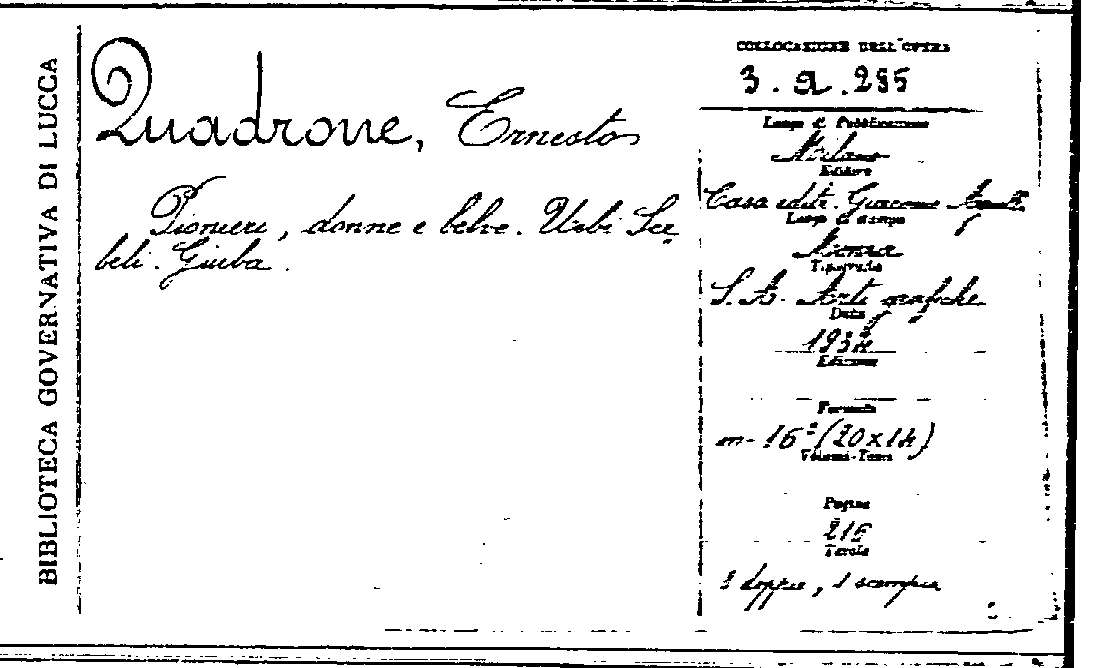 BIBLIOTECA GOVERNATIVA DI LUCCA
Quadrone, Ernesto
Pionieri, donne e belve. Uebi Sce_
beli. Giuba.
COLLOCAZIONE DELL'OPERA
3. a. 285
Luogo di Pubblicazione
Milano
Editore
Casa editr. Giacomo Agnelli
Luogo di stampa
Monza
Tipografia
S. A. Arti grafiche
Data
1934
Edizione
Formato
m- 16° (20x14)
Volumi-Tomi
Pagine
216
Tavole
1 doppia, 1 scempia